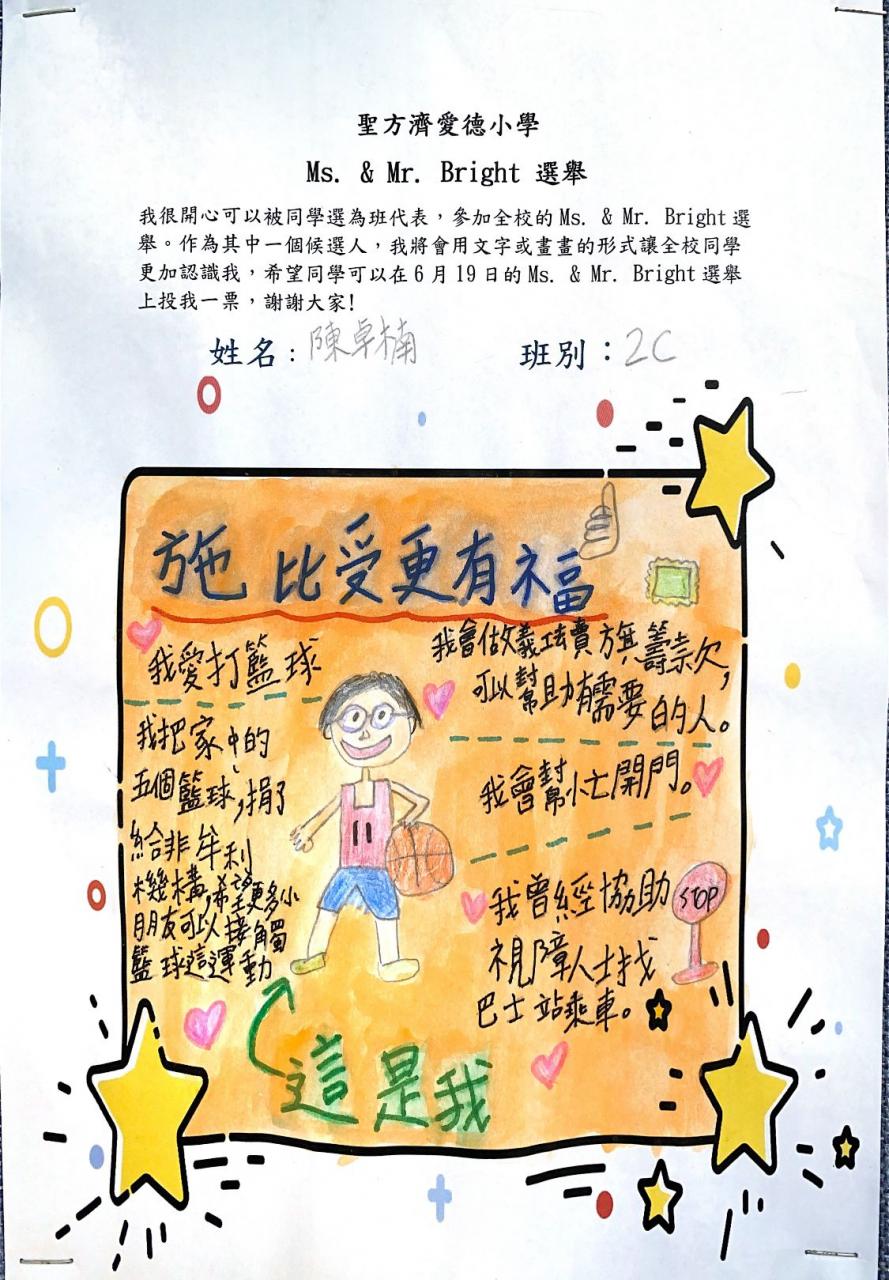 聖方濟愛德小學
Ms. & Mr. Bright 選舉
我很開心可以被同學選為班代表，參加全校的Ms. & Mr. Bright選
舉。作為其中一個候選人，我將會用文字或畫畫的形式讓全校同學
更加認識我，希望同學可以在6月19日的Ms. & Mr. Bright選舉
上投我一票，謝謝大家!
姓名：陳卓楠 班別：2C
施比受更有福
我愛打籃球
我把家中的
五個籃球,捐了
給非牟利
機構,希望更多小
朋友可以接觸
籃球這運動
11
我會做義工去賣旗,籌款,
可以幫助有需要的人。
我會幫忙開門。
我曾經協助
視障人士找
巴士站乘車。
STOP
這是我